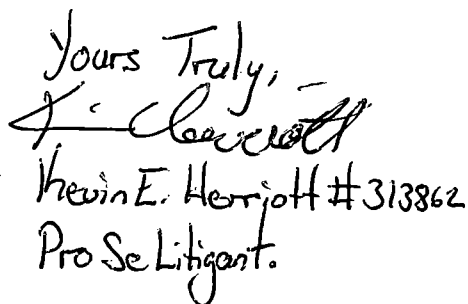 Yours Truly,
Kevin E. Herriott #313862
Pro Se Litigant.